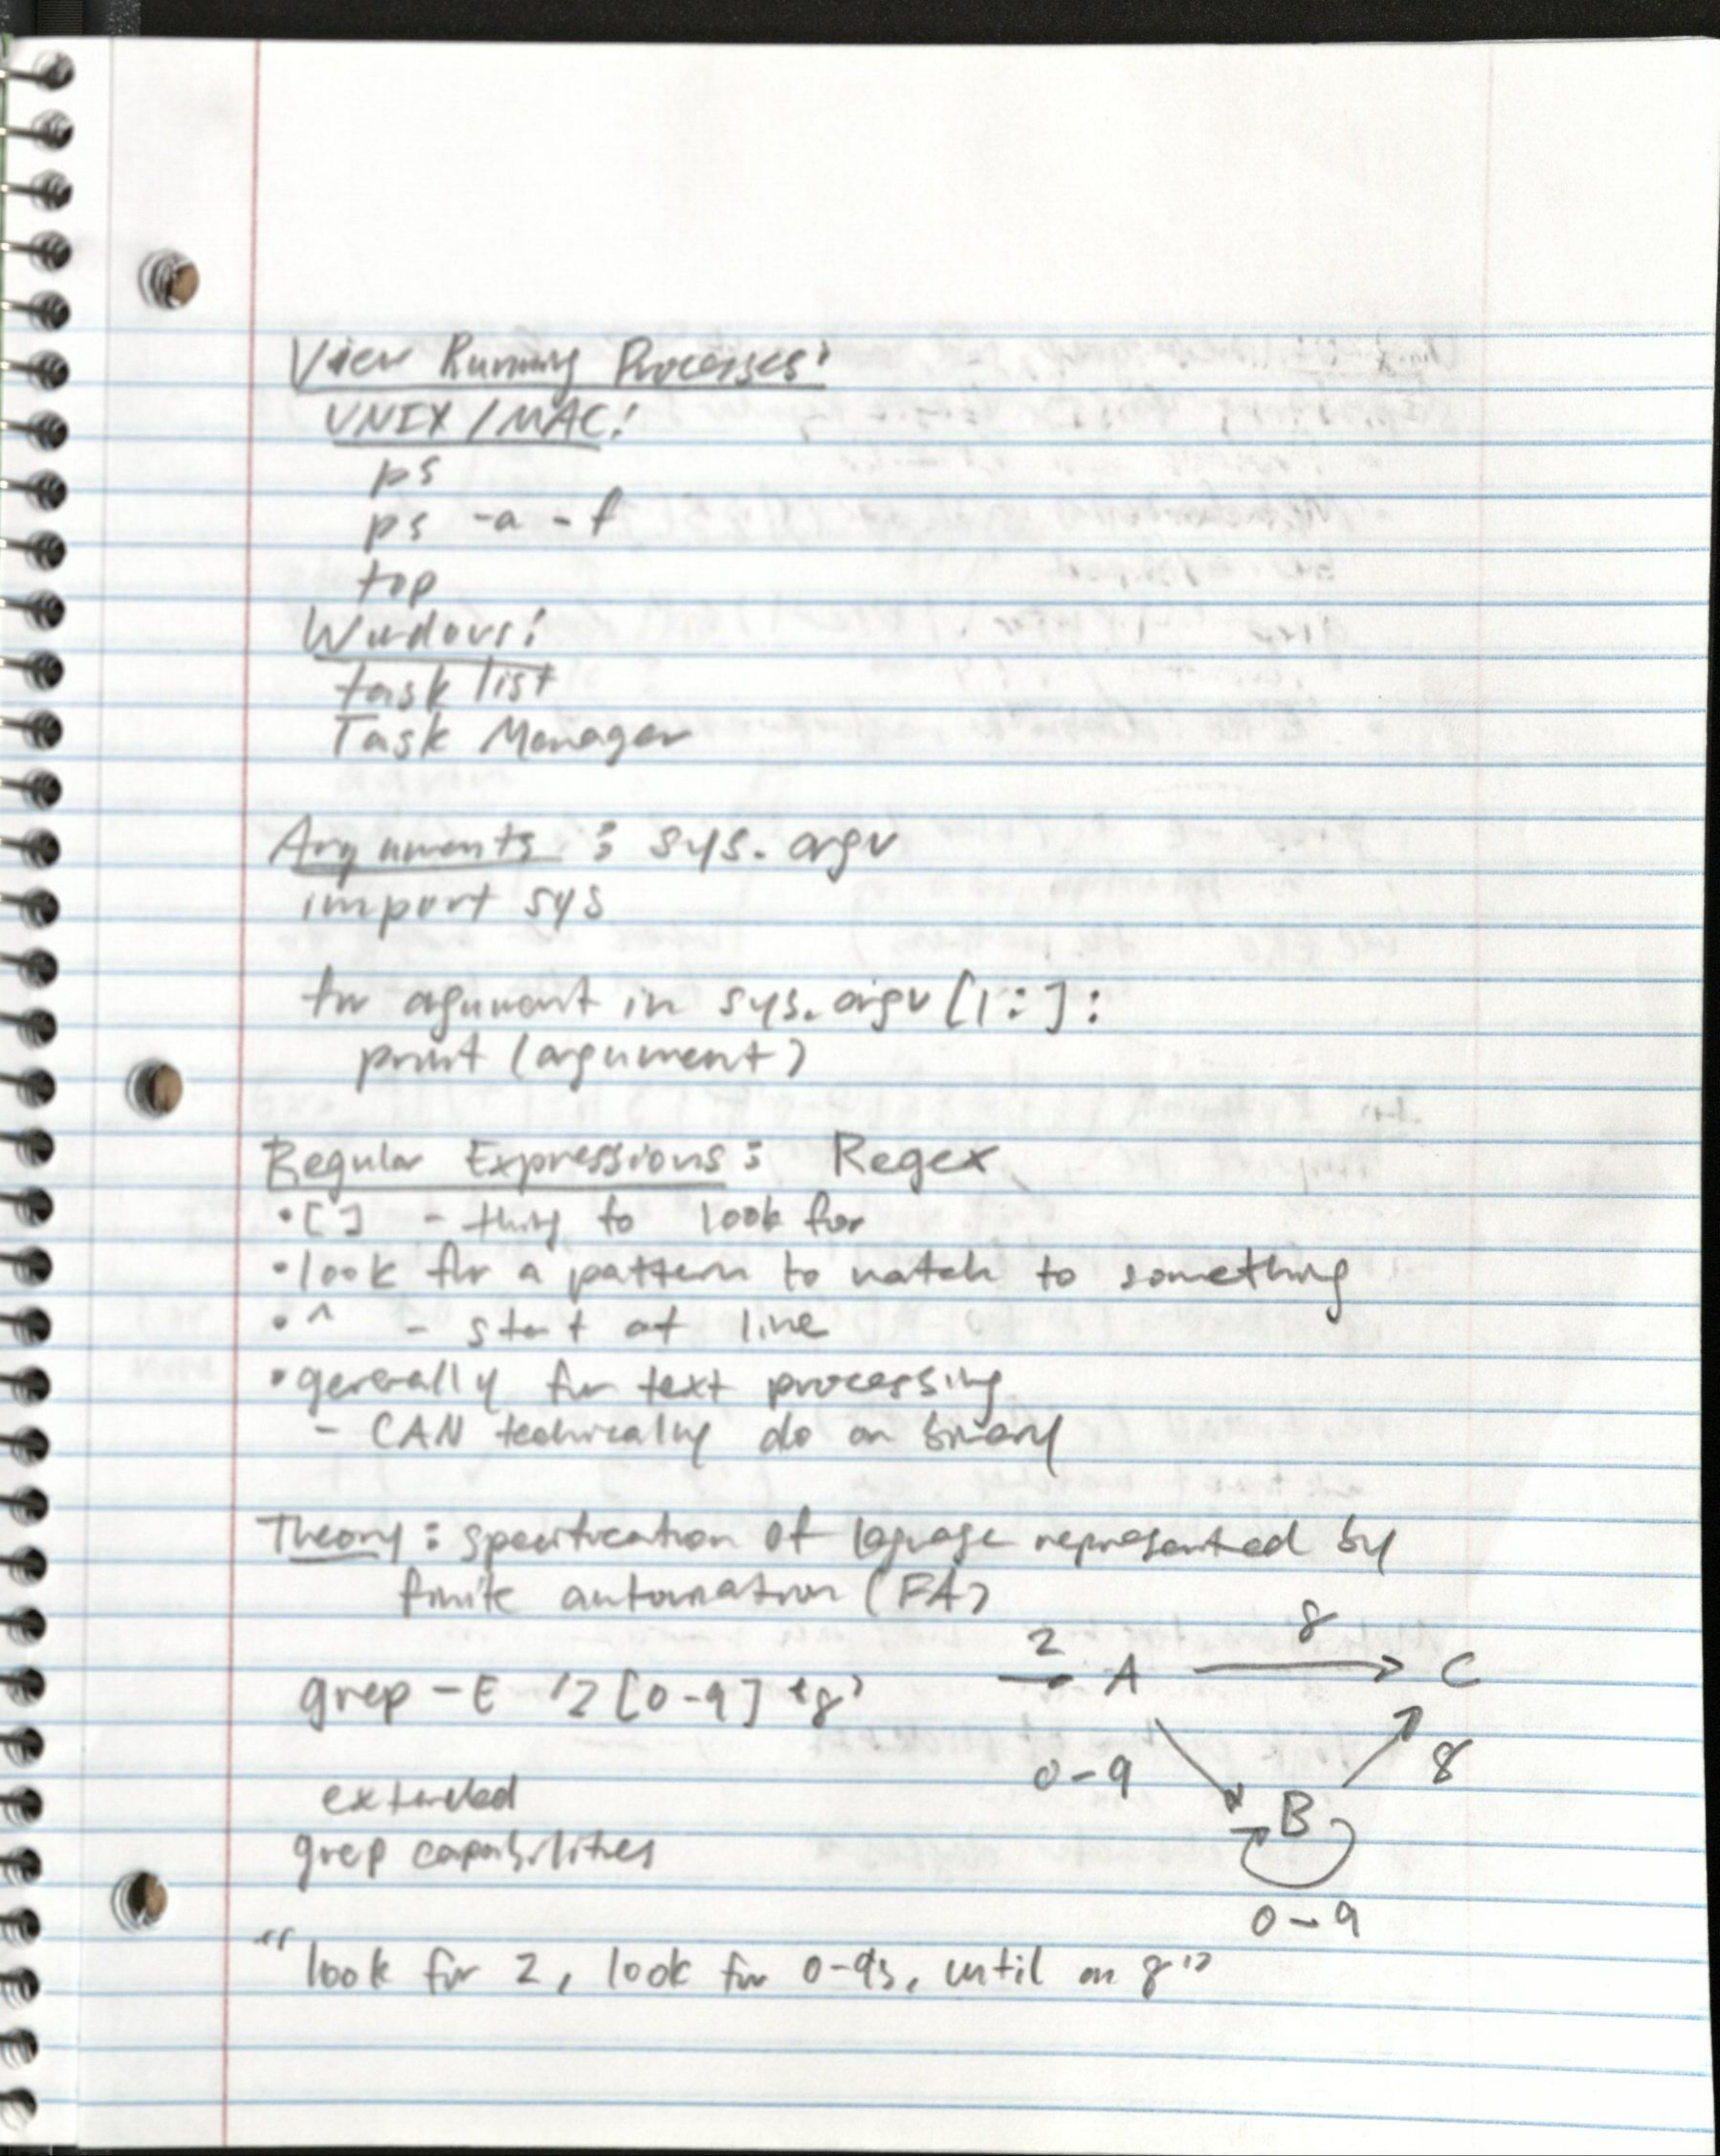 View Running Processes:
UNIX / MAC:
ps
ps -a -f
top
Windows:
task list
Task Manager
Arguments : sys.argv
import sys
for argument in sys.argv[1:]:
print (argument)
Regular Expressions : Regex
• [ ] - thing to look for
• look for a pattern to match to something
• ^ - start at line
• generally for text processing
- CAN technically do on binary
Theory : specification of language represented by
finite automation (FA)
2 8
grep -E '2[0-9]*8' A C
0-9 8
extended
B
grep capabilities
0-9
"look for 2, look for 0-9s, until an 8"